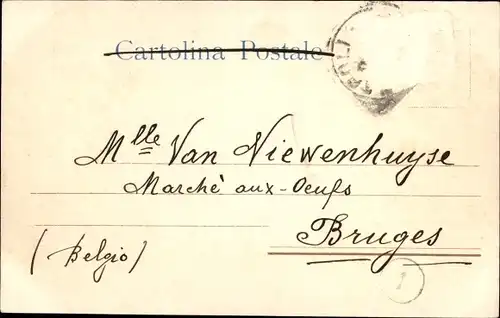 Cartolina Postale
Mlle Van Niewenhuyse
Marché aux-Oeufs
Bruges
(Belgio)
1